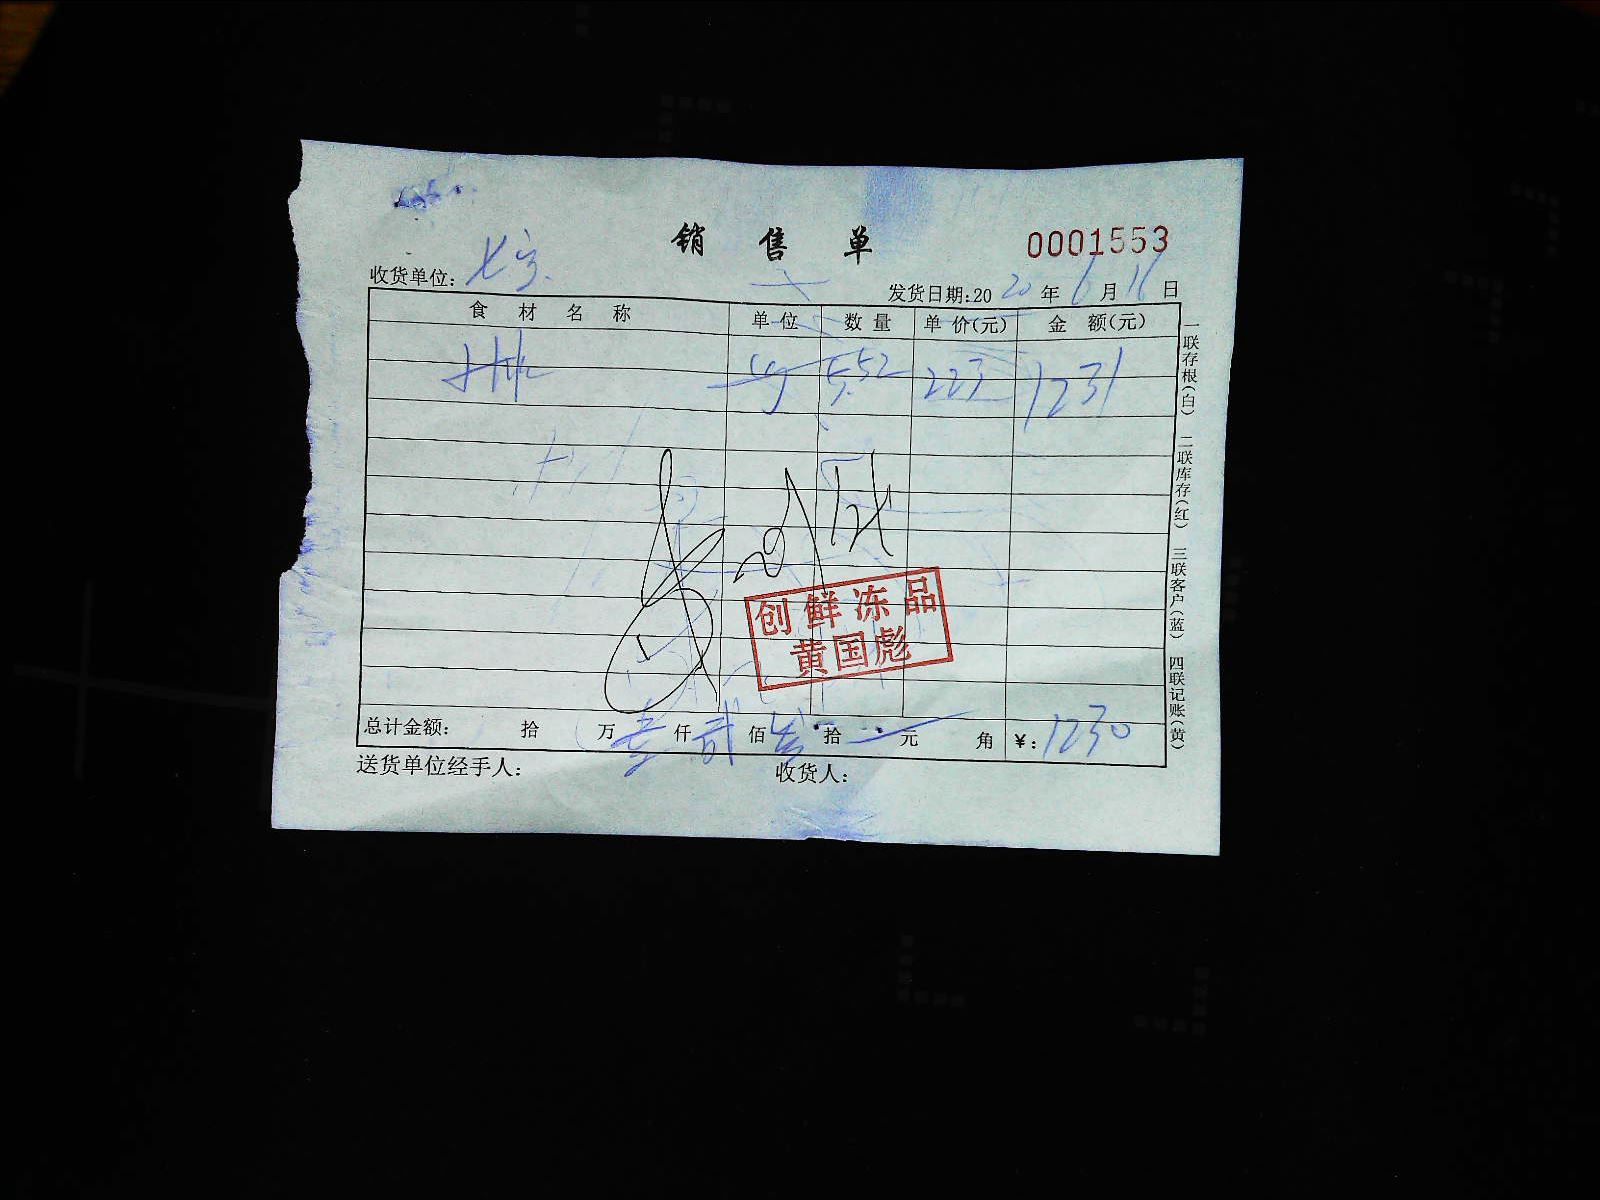 销售单 0001553
收货单位: 发货日期:2020年6月16日
食材名称 单位 数量 单价(元) 金额(元)
5.52 223 1231
创鲜冻品
黄国彪
总计金额: 拾 万 壹仟 贰佰 叁拾 元 角 ¥:1230
送货单位经手人: 收货人:
一联存根(白) 二联库存(红) 三联客户(蓝) 四联记账(黄)